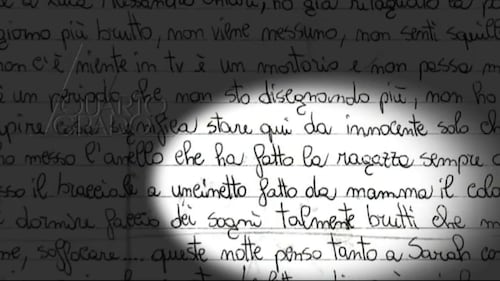 ho già ritagliato la
giorno più brutto, non viene nessuno, non senti squill
non c'è niente in tv è un mortorio e non passa m
è un periodo che non sto disegnando più, non ho
pire cosa significa stare qui da innocente solo ch
o messo l'anello che ha fatto la ragazza sempre
sso il bracciale a uncinetto fatto da mamma il colo
dormire faccio dei sogni talmente brutti che m
ne, soffocare.... queste notte penso tanto a Sarah co